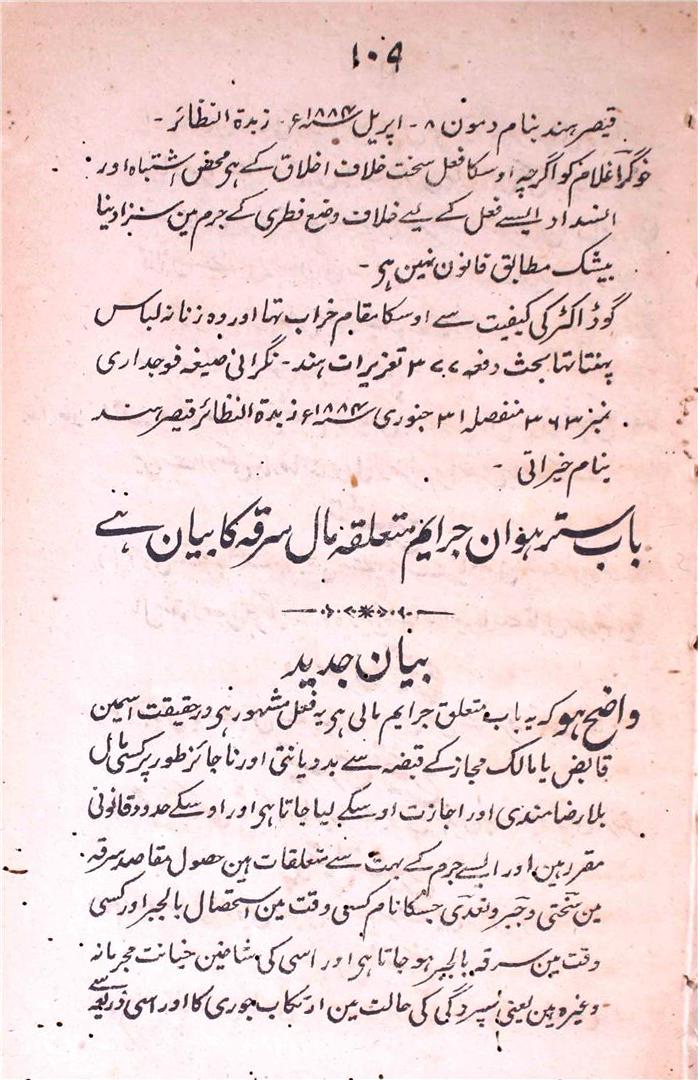 ۱۰۹
قیصر ہند بنام دمون ۸ - اپریل سنہ ۱۸۸۴ء - زبدۃ النظائر -
خوگر اغلام کو اگرچہ اوسکا فعل سخت خلاف اخلاق کے ہر محض اشتباہ اور
انسداد ایسے فعل کے لیے خلاف وضع فطری کے جرم مین سزا دینا
بیشک مطابق قانون نہین ہر -
گو ڈاکٹر کی کیفیت سے اوسکا مقام خراب تھا اور وہ زنانہ لباس
پہنتا تہا بحث دفعہ ۳۷۷ تعزیرات ہند - نگرانی صیغہ فوجداری
نمبر ۳۶۳ منفصلہ ۳۱ جنوری سنہ ۱۸۸۴ء زبدۃ النظائر قیصر ہند
بنام خیراتی -
باب سترہوان جرایم متعلقہ مال سرقہ کا بیان ہے
بیان جدید
واضح ہو کہ یہ باب متعلق جرایم مالی ہر یہ فعل مشہور ہر درحقیقت اسمین
قابض یا مالک مجاز کے قبضہ سے بددیانتی اور ناجائز طور پر کسی مال
بلا رضامندی اور اجازت اوسکے لیا جاتا ہر اور اوسکے حدود قانونی
مقرر ہین اور ایسے جرم کے بہت سے متعلقات ہین حصول مقاصد سرقہ
مین سختی و جبر و تعدی جسکا نام کسی وقت مین استحصال بالجبر اور کسی
وقت مین سرقہ بالجبر ہو جاتا ہر اور اسی کی شاخین خیانت مجرمانہ
وغیرہ ہین یعنی سپردگی کی حالت مین ارتکاب چوری کا اور اسی ذریعہ سے